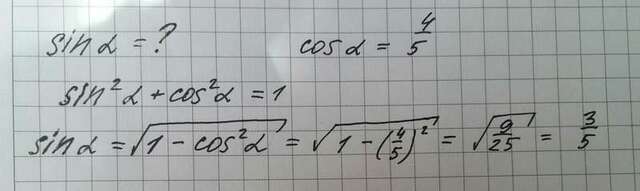 sin α = ? cos α = 4/5
sin²α + cos²α = 1
sin α = √(1 - cos²α) = √(1 - (4/5)²) = √(9/25) = 3/5